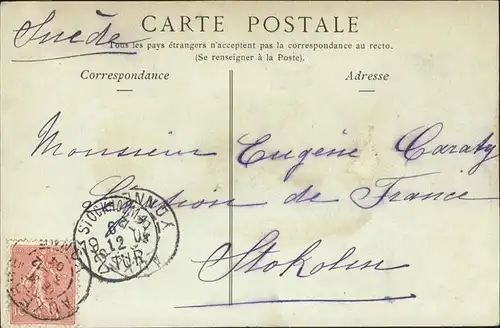 CARTE POSTALE
Suède
Tous les pays étrangers n'acceptent pas la correspondance au recto.
(Se renseigner à la Poste).
Correspondance
Adresse
Monsieur Eugène Caraty
de France
Stokolm
STOCKHOLM
TUR